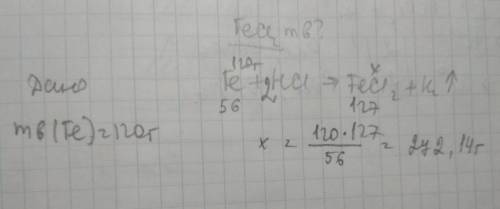 FeCl₂ mв?
Дано
mв (Fe) = 120г
120г x
Fe + 2HCl → FeCl₂ + H₂ ↑
56 127
x = 120·127 / 56 = 272,14г